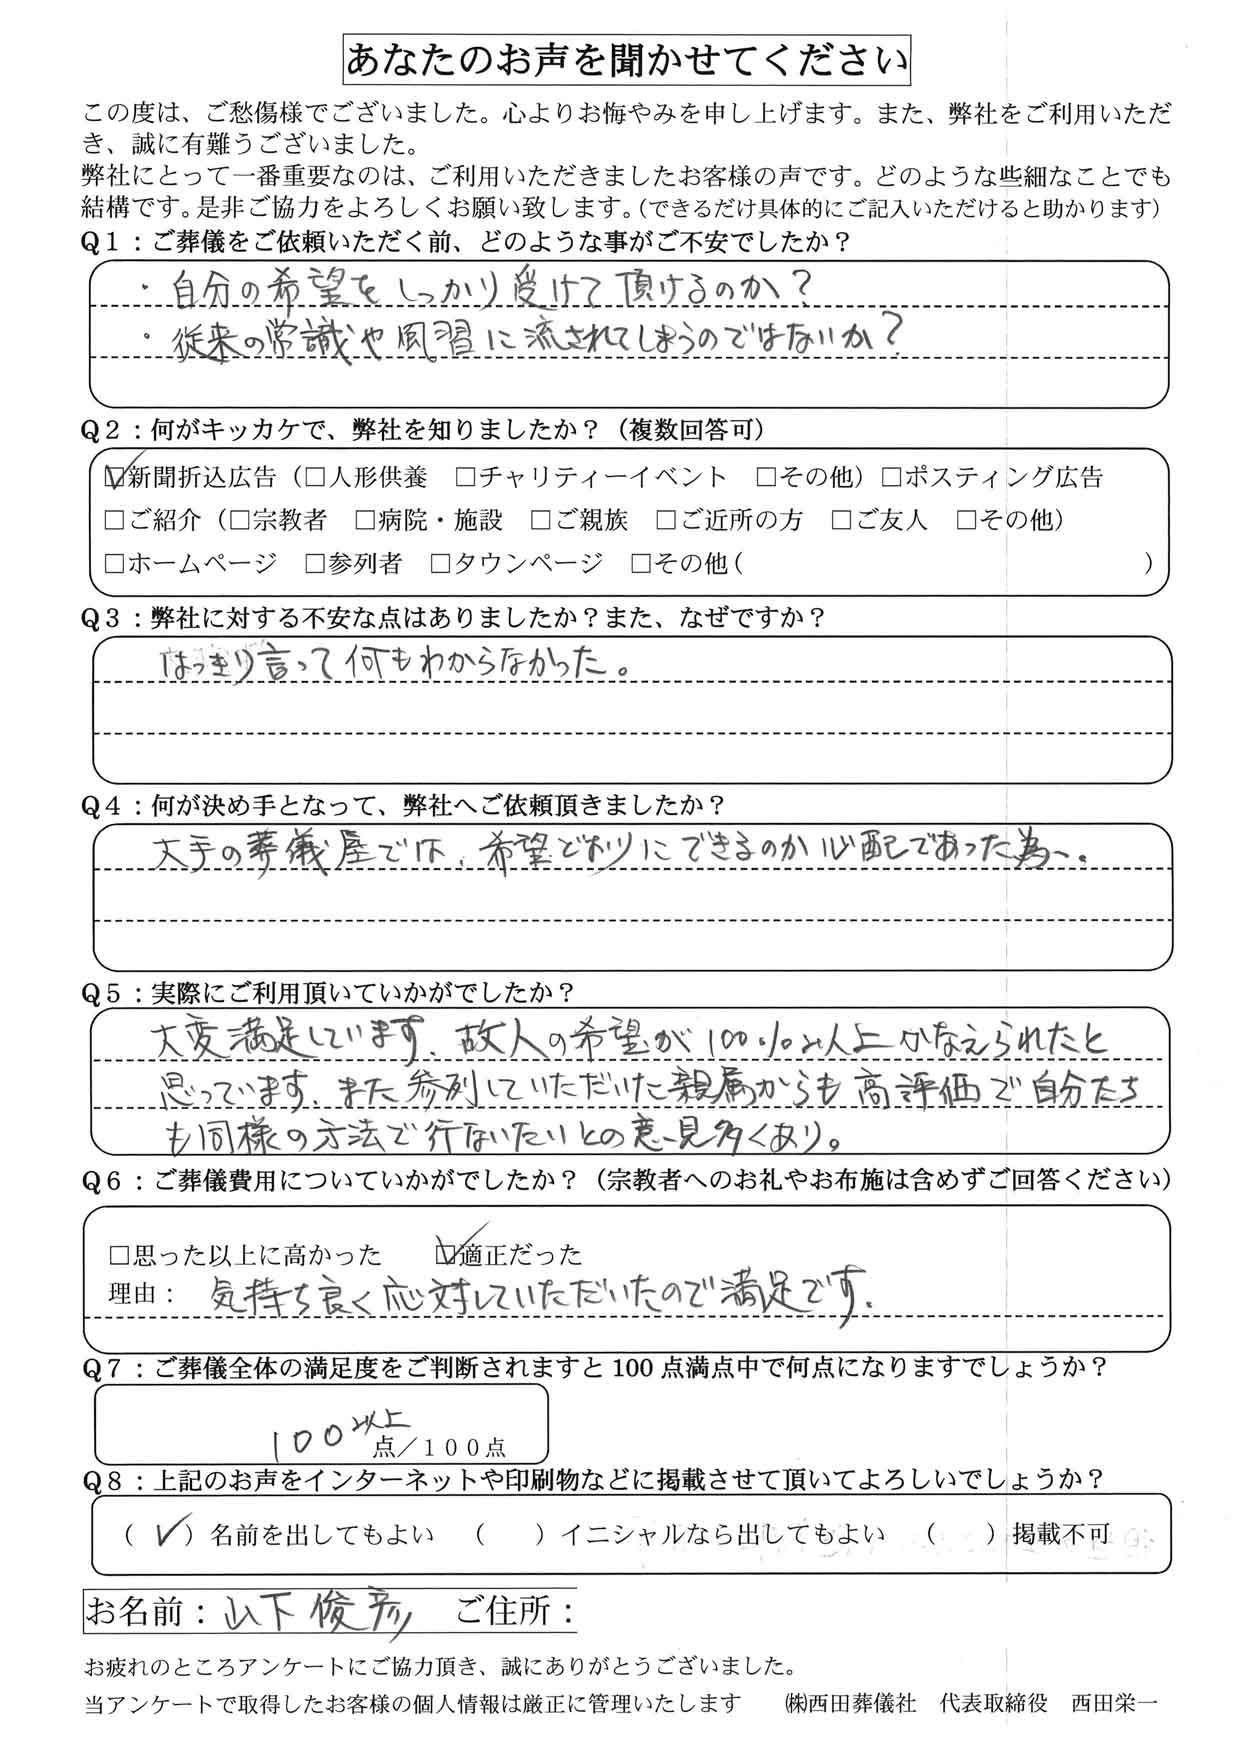 あなたのお声を聞かせてください
この度は、ご愁傷様でございました。心よりお悔やみを申し上げます。また、弊社をご利用いただ
き、誠に有難うございました。
弊社にとって一番重要なのは、ご利用いただきましたお客様の声です。どのような些細なことでも
結構です。是非ご協力をよろしくお願い致します。（できるだけ具体的にご記入いただけると助かります）
Q１：ご葬儀をご依頼いただく前、どのような事がご不安でしたか？
・自分の希望をしっかり受けて頂けるのか？
・従来の常識や風習に流されてしまうのではないか？
Q２：何がキッカケで、弊社を知りましたか？（複数回答可）
☑新聞折込広告（□人形供養　□チャリティーイベント　□その他）□ポスティング広告
□ご紹介（□宗教者　□病院・施設　□ご親族　□ご近所の方　□ご友人　□その他）
□ホームページ　□参列者　□タウンページ　□その他（　　　　　　　　）
Q３：弊社に対する不安な点はありましたか？また、なぜですか？
はっきり言って何もわからなかった。
Q４：何が決め手となって、弊社へご依頼頂きましたか？
大手の葬儀屋では、希望どおりにできるのか心配であった為。
Q５：実際にご利用頂いていかがでしたか？
大変満足しています、故人の希望が100%以上かなえられたと
思っています、また参列していただいた親属からも高評価で自分たち
も同様の方法で行ないたいとの意見多くあり。
Q６：ご葬儀費用についていかがでしたか？（宗教者へのお礼やお布施は含めずご回答ください）
□思った以上に高かった　☑適正だった
理由：気持ち良く応対していただいたので満足です、
Q７：ご葬儀全体の満足度をご判断されますと100点満点中で何点になりますでしょうか？
100以上点／１００点
Q８：上記のお声をインターネットや印刷物などに掲載させて頂いてよろしいでしょうか？
（✓）名前を出してもよい　（　　）イニシャルなら出してもよい　（　　）掲載不可
お名前：山下俊彦　ご住所：
お疲れのところアンケートにご協力頂き、誠にありがとうございました。
当アンケートで取得したお客様の個人情報は厳正に管理いたします　㈱西田葬儀社　代表取締役　西田栄一